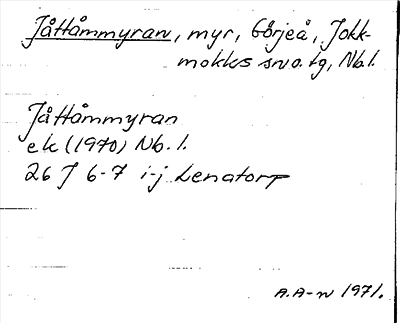 Jåttåmmyran, myr, Görjeå, Jokk-
mokks sno. tg, Nbl.
Jåttåmmyran
ek (1970) Nb. l.
26 J 6-7 i-j Lenatorp
A.A-n 1971.